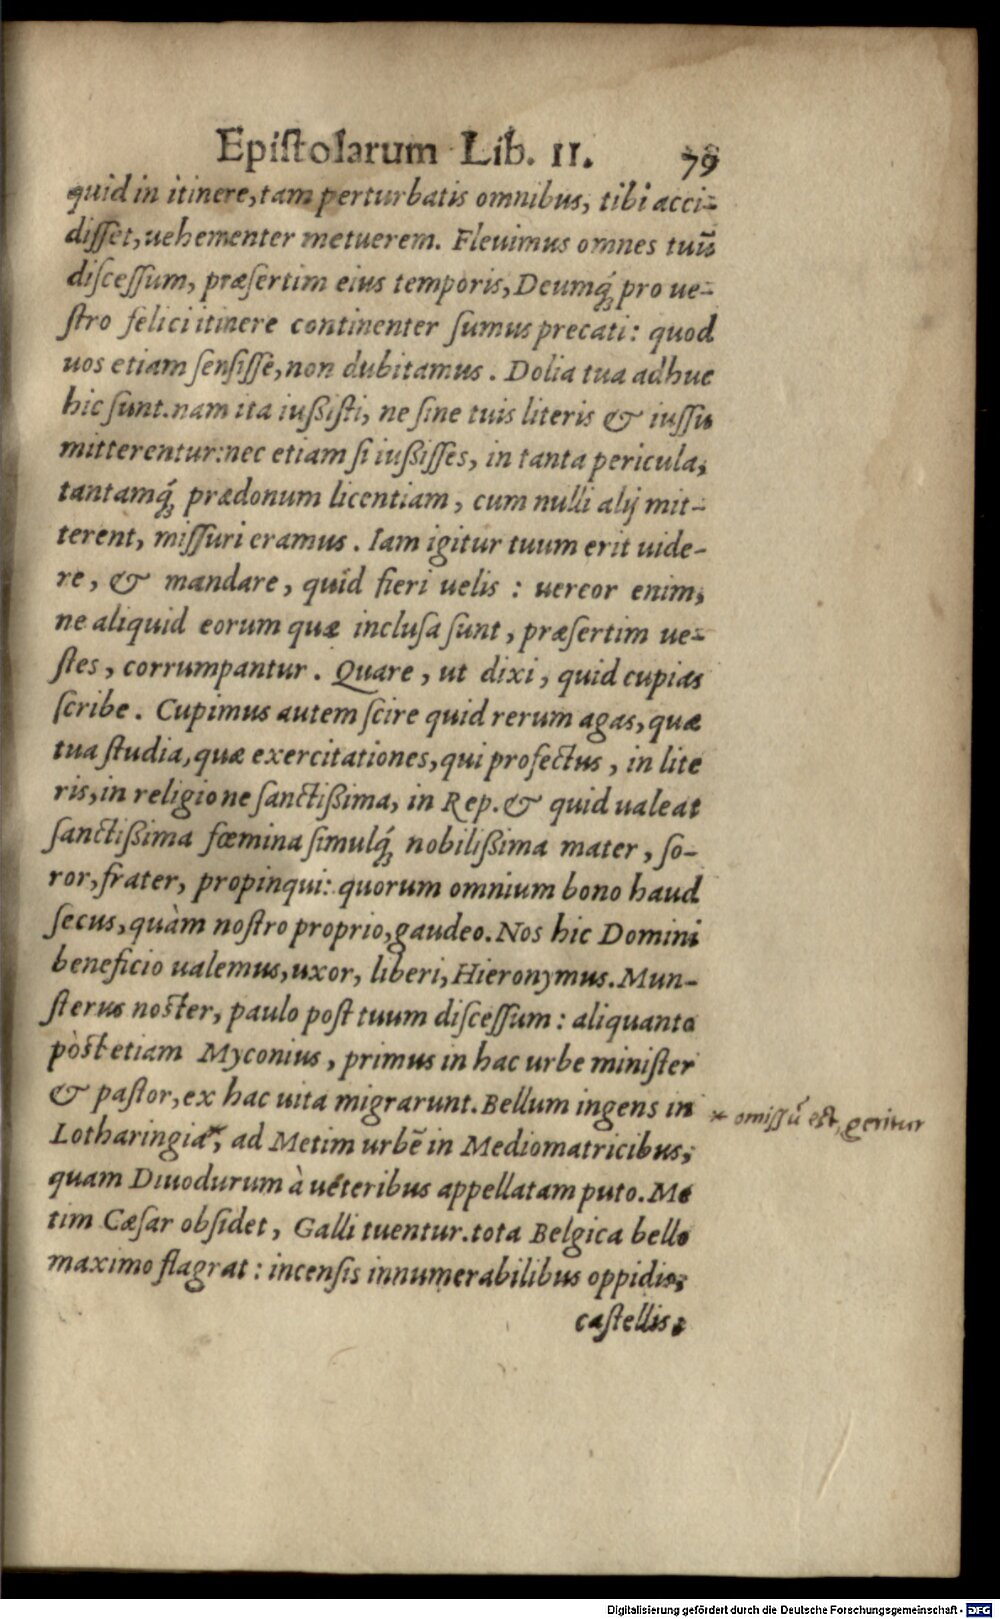 Epistolarum Lib. II. 79
quid in itinere, tam perturbatis omnibus, tibi acci-
disset, uehementer metuerem. Fleuimus omnes tuū
discessum, præsertim eius temporis, Deumq́; pro ue-
stro felici itinere continenter sumus precati: quod
uos etiam sensisse, non dubitamus. Dolia tua adhuc
hic sunt. nam ita iußisti, ne sine tuis literis & iussu
mitterentur: nec etiam si iußisses, in tanta pericula,
tantamq́; prædonum licentiam, cum nulli alij mit-
terent, missuri eramus. Iam igitur tuum erit uide-
re, & mandare, quid fieri uelis: uereor enim,
ne aliquid eorum quæ inclusa sunt, præsertim ue-
stes, corrumpantur. Quare, ut dixi, quid cupias
scribe. Cupimus autem scire quid rerum agas, quæ
tua studia, quæ exercitationes, qui profectus, in lite
ris, in religione sanctißima, in Rep. & quid ualeat
sanctißima fœmina simulq́; nobilißima mater, so-
ror, frater, propinqui: quorum omnium bono haud
secus, quàm nostro proprio, gaudeo. Nos hic Domini
beneficio ualemus, uxor, liberi, Hieronymus. Mun-
sterus noster, paulo post tuum discessum: aliquanto
pòst etiam Myconius, primus in hac urbe minister
& pastor, ex hac uita migrarunt. Bellum ingens in
* omissū est, geritur
Lotharingia*, ad Metim urbē in Mediomatricibus,
quam Diuodurum à ueteribus appellatam puto. Me
tim Cæsar obsidet, Galli tuentur. tota Belgica bello
maximo flagrat: incensis innumerabilibus oppidis,
castellis,
Digitalisierung gefördert durch die Deutsche Forschungsgemeinschaft - DFG